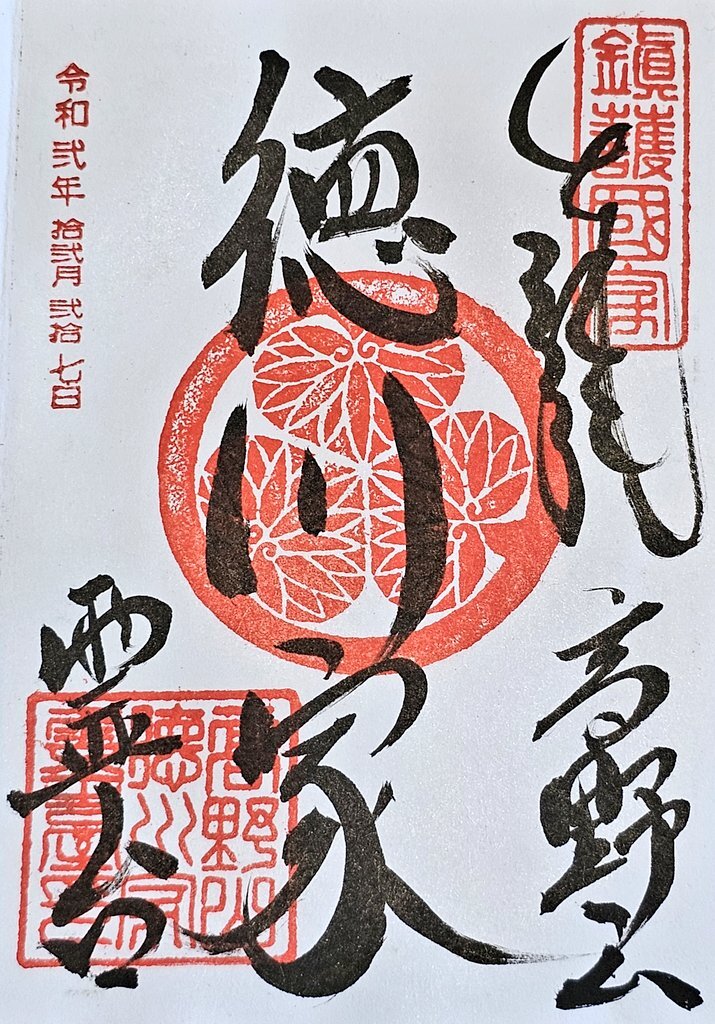 鎭護國
奉拝
高野山
徳川家
霊台
令和弐年拾弐月弐拾七日
高野山
徳川家